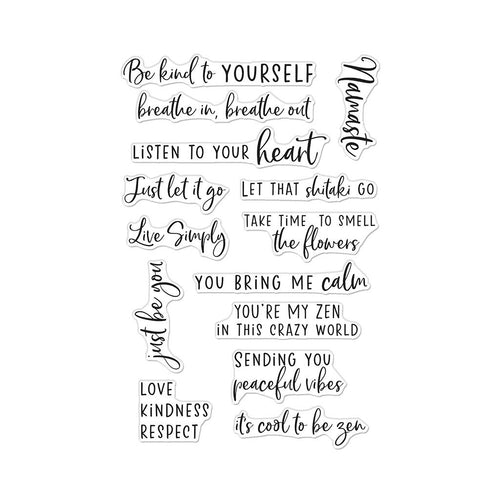 Be kind to YOURSELF
Namaste
breathe in, breathe out
LiSTEN TO YOUR heart
Just let it go
LET THAT shitaki GO
Live Simply
TAKE TIME TO SMELL
the flowers
just be you
YOU BRiNG ME calm
YOU'RE MY ZEN
iN THiS CRAZY WORLD
SENDiNG YOU
peaceful vibes
LOVE
KiNDNESS
RESPECT
it's cool to be zen